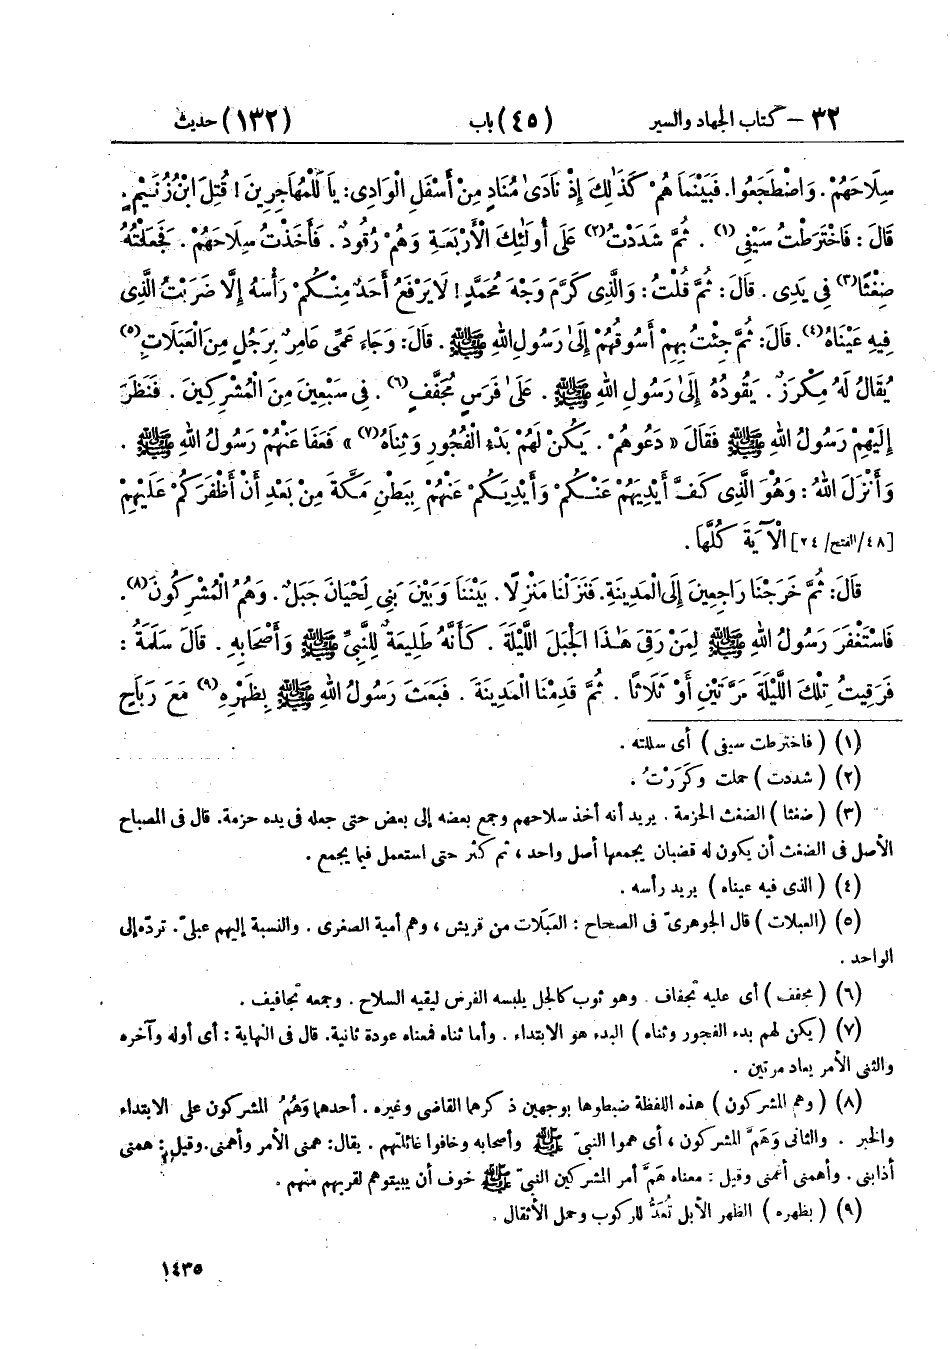 ٣٢ – كتاب الجهاد والسير (٤٥) باب (١٣٢) حديث
سِلَاحَهُمْ . وَاضْطَجَعُوا . فَبَيْنَمَا هُمْ كَذَٰلِكَ إِذْ نَادَىٰ مُنَادٍ مِنْ أَسْفَلِ الْوَادِى : يَا لَلْمُهَاجِرِينَ ! قُتِلَ ابْنُ زُنَيْمٍ .
قَالَ : فَاخْتَرَطْتُ سَيْفِى (١) . ثُمَّ شَدَدْتُ (٢) عَلَىٰ أُولَٰئِكَ الْأَرْبَعَةِ وَهُمْ رُقُودٌ . فَأَخَذْتُ سِلَاحَهُمْ . فَجَعَلْتُهُ
ضِغْثًا (٣) فِى يَدِى . قَالَ : ثُمَّ قُلْتُ : وَالَّذِى كَرَّمَ وَجْهَ مُحَمَّدٍ ! لَا يَرْفَعُ أَحَدٌ مِنْكُمْ رَأْسَهُ إِلَّا ضَرَبْتُ الَّذِى
فِيهِ عَيْنَاهُ (٤) . قَالَ : ثُمَّ جِئْتُ بِهِمْ أَسُوقُهُمْ إِلَىٰ رَسُولِ اللهِ ﷺ . قَالَ : وَجَاءَ عَمِّى عَامِرٌ بِرَجُلٍ مِنَ الْعَبَلَاتِ (٥)
يُقَالُ لَهُ مِكْرَزٌ . يَقُودُهُ إِلَىٰ رَسُولِ اللهِ ﷺ . عَلَىٰ فَرَسٍ مُجَفَّفٍ (٦) . فِى سَبْعِينَ مِنَ الْمُشْرِكِينَ . فَنَظَرَ
إِلَيْهِمْ رَسُولُ اللهِ ﷺ فَقَالَ « دَعُوهُمْ . يَكُنْ لَهُمْ بَدْءُ الْفُجُورِ وَثِنَاهُ (٧) » فَعَفَا عَنْهُمْ رَسُولُ اللهِ ﷺ .
وَأَنْزَلَ اللهُ : وَهُوَ الَّذِى كَفَّ أَيْدِيَهُمْ عَنْكُمْ وَأَيْدِيَكُمْ عَنْهُمْ بِبَطْنِ مَكَّةَ مِنْ بَعْدِ أَنْ أَظْفَرَكُمْ عَلَيْهِمْ
[٤٨/الفتح/٢٤] الْآيَةَ كُلَّهَا .
قَالَ : ثُمَّ خَرَجْنَا رَاجِعِينَ إِلَى الْمَدِينَةِ . فَنَزَلْنَا مَنْزِلًا . بَيْنَنَا وَبَيْنَ بَنِى لِحْيَانَ جَبَلٌ . وَهُمُ الْمُشْرِكُونَ (٨) .
فَاسْتَغْفَرَ رَسُولُ اللهِ ﷺ لِمَنْ رَقِىَ هَٰذَا الْجَبَلَ اللَّيْلَةَ . كَأَنَّهُ طَلِيعَةٌ لِلنَّبِىِّ ﷺ وَأَصْحَابِهِ . قَالَ سَلَمَةُ :
فَرَقِيتُ تِلْكَ اللَّيْلَةَ مَرَّتَيْنِ أَوْ ثَلَاثًا . ثُمَّ قَدِمْنَا الْمَدِينَةَ . فَبَعَثَ رَسُولُ اللهِ ﷺ بِظَهْرِهِ (٩) مَعَ رَبَاحٍ
(١) ( فاخترطت سيفى ) أى سللته .
(٢) ( شددت ) حملت وكَرَرْتُ .
(٣) ( ضغثا ) الضغث الحزمة . يريد أنه أخذ سلاحهم وجمع بعضه إلى بعض حتى جعله فى يده حزمة . قال فى المصباح
الأصل فى الضغث أن يكون له قضبان يجمعها أصل واحد ، ثم كثر حتى استعمل فيما يجمع .
(٤) ( الذى فيه عيناه ) يريد رأسه .
(٥) ( العبلات ) قال الجوهرىّ فى الصحاح : العَبَلات من قريش ، وهم أمية الصغرى . والنسبة إليهم عبلىّ . تردّه إلى
الواحد .
(٦) ( مجفف ) أى عليه تَجفاف . وهو ثوب كالجل يلبسه الفرس ليقيه السلاح . وجمعه تجافيف .
(٧) ( يكن لهم بدء الفجور وثناه ) البدء هو الابتداء . وأما ثناه فمعناه عودة ثانية . قال فى النهاية : أى أوله وآخره
والثنى الأمر يعاد مرتين .
(٨) ( وهم المشركون ) هذه اللفظة ضبطوها بوجهين ذكرها القاضى وغيره . أحدهما وَهُمُ المشركون على الابتداء
والخبر . والثانى وَهَمَّ المشركون ، أى هموا النبىّ ﷺ وأصحابه وخافوا غائلتهم . يقال : همنى الأمر وأهمنى . وقيل : همنى
أذابنى . وأهمنى أغمنى وقيل : معناه هَمَّ أمر المشركين النبىّ ﷺ خوف أن يبيتوهم لقربهم منهم .
(٩) ( بظهره ) الظهر الأبل تُعَدُّ للركوب وحمل الأثقال .
١٤٣٥